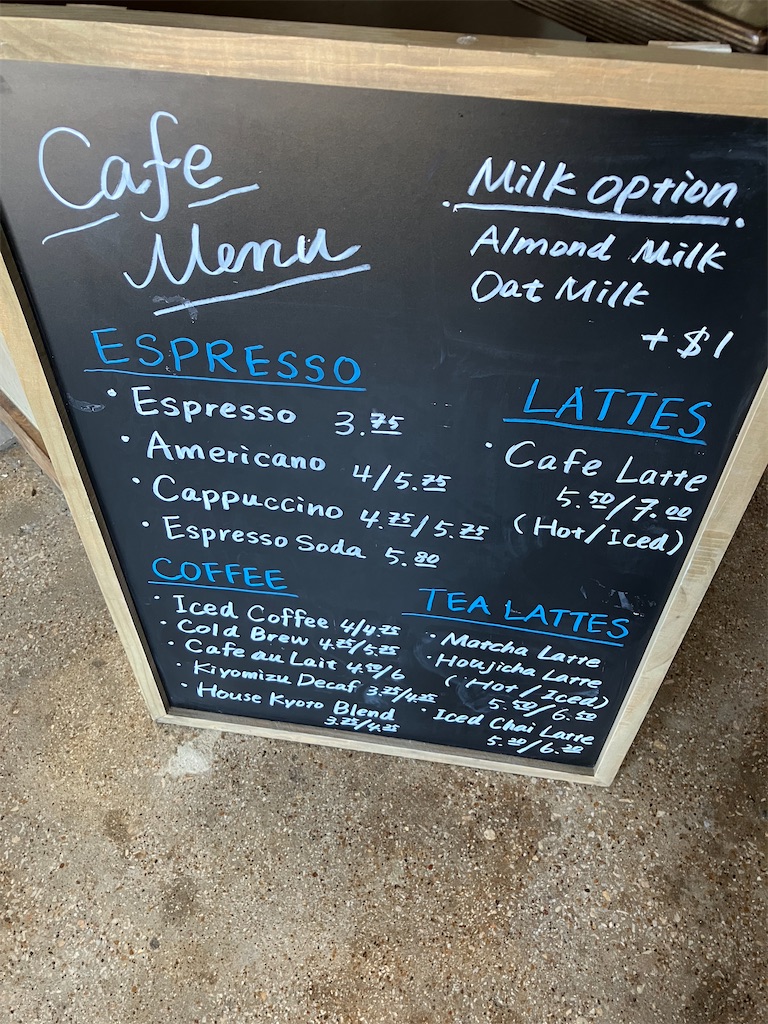 Cafe
Menu
ESPRESSO
· Espresso 3.75
· Americano 4/5.25
· Cappuccino 4.75/5.75
· Espresso Soda 5.80
COFFEE
· Iced Coffee 4/4.75
· Cold Brew 4.75/5.75
· Cafe au Lait 4.50/6
· Kiyomizu Decaf 3.75/4.25
· House Kyoto Blend
3.75/4.25
Milk Option
Almond Milk
Oat Milk
+ $1
LATTES
· Cafe Latte
5.50/7.00
(Hot/Iced)
TEA LATTES
· Matcha Latte
· Houjicha Latte
(Hot/Iced)
5.50/6.50
· Iced Chai Latte
5.20/6.20